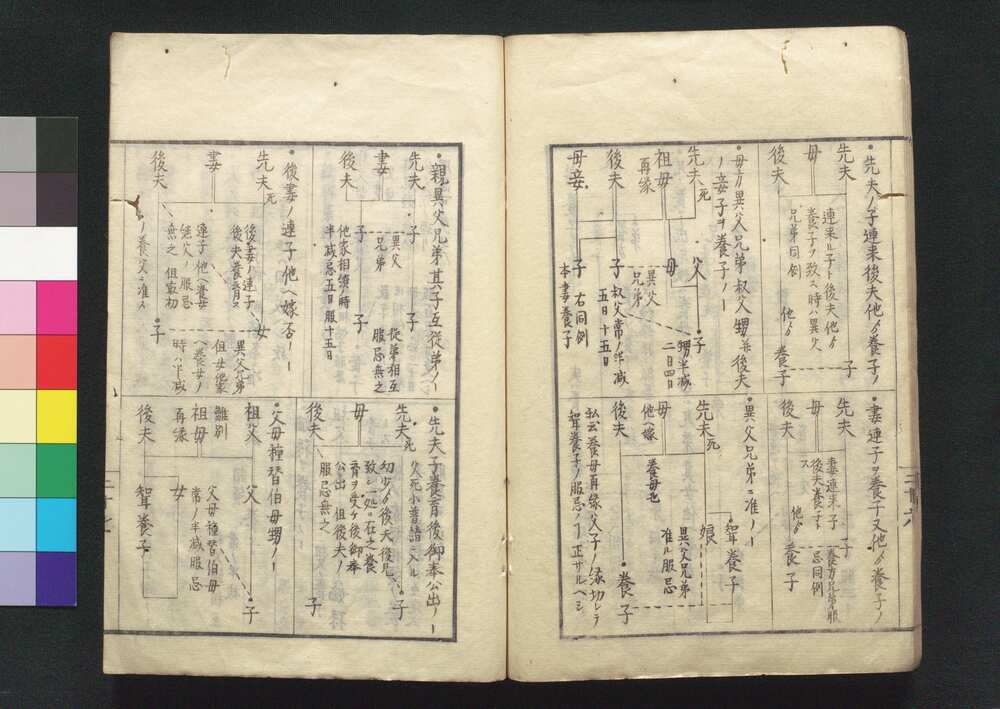 先夫ノ子連来後夫他ゟ養子ノ
先夫
母
後夫
連来ル子ト後夫他ゟ
養子ヲ致ス時ハ異父
兄弟同例
子
他ゟ
養子
妻連子ヲ養子又他ゟ養子ノ
先夫
母
後夫
妻連来子
後夫養子トス
他ゟ
養子
子
養方兄弟服
忌同例
母方異父兄弟叔父甥並後夫
ノ妾子ヲ養子ノー
先夫
死
祖母
再縁
後夫
母妾
父
母
異父
兄弟
子
甥半減
二日四日
子
叔父常ノ半減
五日十五日
子
右同例
本妻養子
異父兄弟ニ准ノー
先夫
死
母
他ヘ嫁
後夫
養母也
聟養子
娘
異父兄弟
准ル服忌
養子
私云養母再縁父子ノ縁切レテ
聟養子ノ服忌ノー正サルヘシ
親異父兄弟其子互従弟ノー
先夫
妻
後夫
子
異父
兄弟
子
他家相續ノ時
半減忌五日服十五日
子
従弟相互
服忌無之
子
先夫子養育後御奉公出ノー
先夫
死
母
後夫
父死小普請ニ入ル
幼少ゟ後夫後見
致シ一処ニ在之養
育ヲ受ケ後御奉
公出但後夫ノ
服忌無之
子
子
後妻ノ連子他ヘ嫁否ノー
先夫
死
妻
後夫
後妻ノ連子
後夫養育ス
連子他ヘ養女
継父ノ服忌
無之但最初
ノ養父ニ准ス
女
子
異父兄弟
但女他家
ヘ養女ノ
時ハ半減
父母種替伯母甥ノー
祖父
離別
祖母
再縁
後夫
父
女
父母種替伯母
常ノ半減服忌
聟養子
子